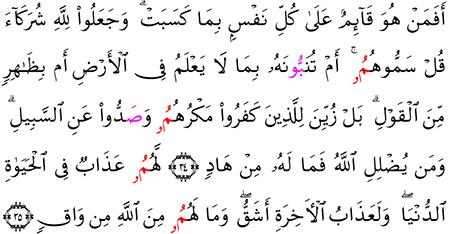 أَفَمَنْ هُوَ قَآئِمٌ عَلَىٰ كُلِّ نَفْسٍۭ بِمَا كَسَبَتْۗ وَجَعَلُوا۟ لِلَّهِ شُرَكَآءَ
قُلْ سَمُّوهُمُۥۚ أَمْ تُنَبُّونَهُۥ بِمَا لَا يَعْلَمُ فِى ٱلْأَرْضِ أَم بِظَٰهِرٍۢ
مِّنَ ٱلْقَوْلِۗ بَلْ زُيِّنَ لِلَّذِينَ كَفَرُوا۟ مَكْرُهُمُۥ وَصَدُّوا۟ عَنِ ٱلسَّبِيلِۗ
وَمَن يُضْلِلِ ٱللَّهُ فَمَا لَهُۥ مِنْ هَادٍۢ ٣٤ لَّهُمُۥ عَذَابٌۭ فِى ٱلْحَيَوٰةِ
ٱلدُّنْيَاۖ وَلَعَذَابُ ٱلْأَخِرَةِ أَشَقُّۖ وَمَا لَهُمُۥ مِنَ ٱللَّهِ مِن وَاقٍۢ ٣٥